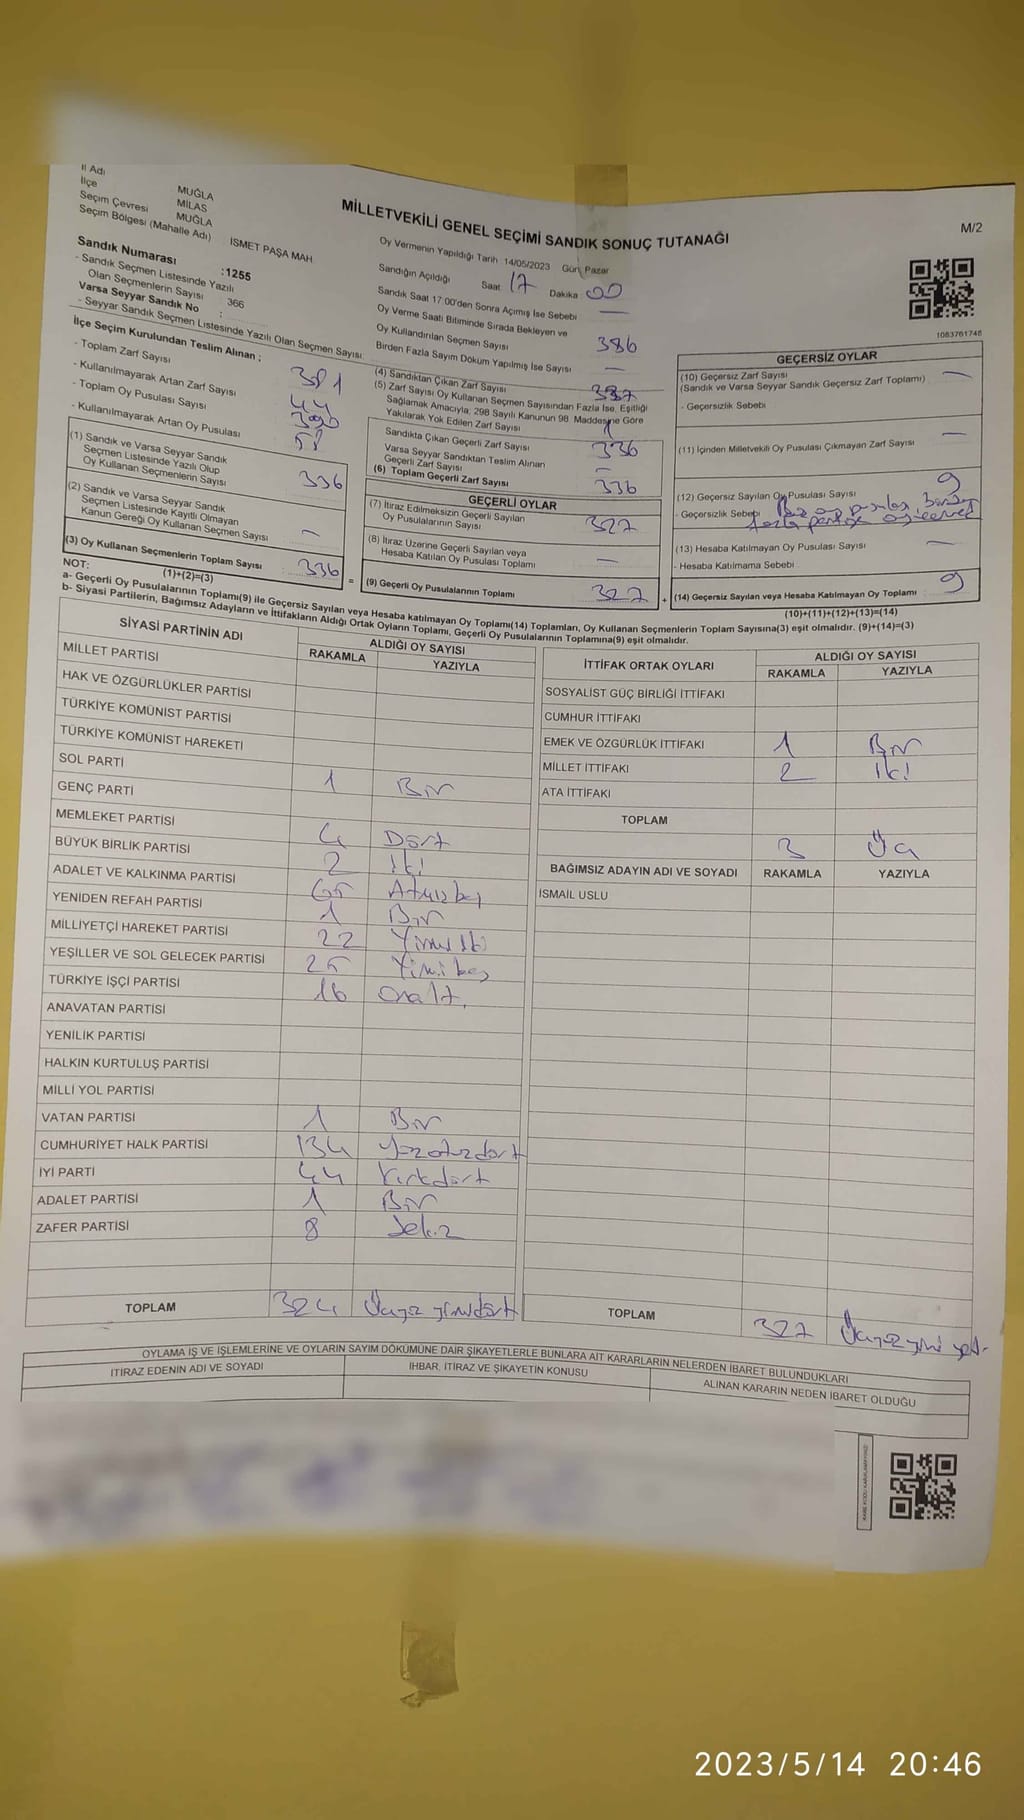 İl Adı MUĞLA
İlçe MİLAS
Seçim Çevresi MUĞLA
Seçim Bölgesi (Mahalle Adı) İSMET PAŞA MAH
MİLLETVEKİLİ GENEL SEÇİMİ SANDIK SONUÇ TUTANAĞI
M/2
Sandık Numarası :1255
- Sandık Seçmen Listesinde Yazılı
Olan Seçmenlerin Sayısı 366
Varsa Seyyar Sandık No :
- Seyyar Sandık Seçmen Listesinde Yazılı Olan Seçmen Sayısı
Oy Vermenin Yapıldığı Tarih 14/05/2023 Gün Pazar
Sandığın Açıldığı Saat 17 Dakika 00
Sandık Saat 17:00'den Sonra Açımış İse Sebebi —
Oy Verme Saati Bitiminde Sırada Bekleyen ve
Oy Kullandırılan Seçmen Sayısı 386
Birden Fazla Sayım Döküm Yapılmış İse Sayısı —
1083761746
İlçe Seçim Kurulundan Teslim Alınan ;
- Toplam Zarf Sayısı 381
- Kullanılmayarak Artan Zarf Sayısı 44
- Toplam Oy Pusulası Sayısı
- Kullanılmayarak Artan Oy Pusulası
(1) Sandık ve Varsa Seyyar Sandık
Seçmen Listesinde Yazılı Olup
Oy Kullanan Seçmenlerin Sayısı 336
(2) Sandık ve Varsa Seyyar Sandık
Seçmen Listesinde Kayıtlı Olmayan
Kanun Gereği Oy Kullanan Seçmen Sayısı —
(3) Oy Kullanan Seçmenlerin Toplam Sayısı 336
(1)+(2)=(3)
(4) Sandıktan Çıkan Zarf Sayısı 337
(5) Zarf Sayısı Oy Kullanan Seçmen Sayısından Fazla İse, Eşitliği
Sağlamak Amacıyla; 298 Sayılı Kanunun 98. Maddesine Göre
Yakılarak Yok Edilen Zarf Sayısı 1
Sandıkta Çıkan Geçerli Zarf Sayısı 336
Varsa Seyyar Sandıktan Teslim Alınan
Geçerli Zarf Sayısı —
(6) Toplam Geçerli Zarf Sayısı 336
GEÇERLİ OYLAR
(7) İtiraz Edilmeksizin Geçerli Sayılan
Oy Pusulalarının Sayısı 327
(8) İtiraz Üzerine Geçerli Sayılan veya
Hesaba Katılan Oy Pusulası Toplamı —
= (9) Geçerli Oy Pusulalarının Toplamı 327 +
GEÇERSİZ OYLAR
(10) Geçersiz Zarf Sayısı —
(Sandık ve Varsa Seyyar Sandık Geçersiz Zarf Toplamı)
- Geçersizlik Sebebi
(11) İçinden Milletvekili Oy Pusulası Çıkmayan Zarf Sayısı —
(12) Geçersiz Sayılan Oy Pusulası Sayısı 9
- Geçersizlik Sebebi
(13) Hesaba Katılmayan Oy Pusulası Sayısı —
- Hesaba Katılmama Sebebi
(14) Geçersiz Sayılan veya Hesaba Katılmayan Oy Toplamı : 9
(10)+(11)+(12)+(13)=(14)
NOT:
a- Geçerli Oy Pusulalarının Toplamı(9) ile Geçersiz Sayılan veya Hesaba katılmayan Oy Toplamı(14) Toplamları, Oy Kullanan Seçmenlerin Toplam Sayısına(3) eşit olmalıdır. (9)+(14)=(3)
b- Siyasi Partilerin, Bağımsız Adayların ve İttifakların Aldığı Ortak Oyların Toplamı, Geçerli Oy Pusulalarının Toplamına(9) eşit olmalıdır.
SİYASİ PARTİNİN ADI
ALDIĞI OY SAYISI
RAKAMLA YAZIYLA
MİLLET PARTİSİ
HAK VE ÖZGÜRLÜKLER PARTİSİ
TÜRKİYE KOMÜNİST PARTİSİ
TÜRKİYE KOMÜNİST HAREKETİ
SOL PARTİ
GENÇ PARTİ 1 Bir
MEMLEKET PARTİSİ
BÜYÜK BİRLİK PARTİSİ 4 Dört
ADALET VE KALKINMA PARTİSİ 2 iki
YENİDEN REFAH PARTİSİ 65 Atmışbeş
MİLLİYETÇİ HAREKET PARTİSİ 1 Bir
YEŞİLLER VE SOL GELECEK PARTİSİ 22
TÜRKİYE İŞÇİ PARTİSİ 25 Yimibeş
ANAVATAN PARTİSİ 16 Onaltı
YENİLİK PARTİSİ
HALKIN KURTULUŞ PARTİSİ
MİLLİ YOL PARTİSİ
VATAN PARTİSİ 1 Bir
CUMHURİYET HALK PARTİSİ 134 Yüzotuzdört
İYİ PARTİ 44 Kırkdört
ADALET PARTİSİ 1 Bir
ZAFER PARTİSİ 8 Sekiz
TOPLAM 324
İTTİFAK ORTAK OYLARI
ALDIĞI OY SAYISI
RAKAMLA YAZIYLA
SOSYALİST GÜÇ BİRLİĞİ İTTİFAKI
CUMHUR İTTİFAKI
EMEK VE ÖZGÜRLÜK İTTİFAKI 1 Bir
MİLLET İTTİFAKI 2 iki
ATA İTTİFAKI
TOPLAM 3 Üç
BAĞIMSIZ ADAYIN ADI VE SOYADI RAKAMLA YAZIYLA
İSMAİL USLU
TOPLAM 327
OYLAMA İŞ VE İŞLEMLERİNE VE OYLARIN SAYIM DÖKÜMÜNE DAİR ŞİKAYETLERLE BUNLARA AİT KARARLARIN NELERDEN İBARET BULUNDUKLARI
İTİRAZ EDENİN ADI VE SOYADI
İHBAR, İTİRAZ VE ŞİKAYETİN KONUSU
ALINAN KARARIN NEDEN İBARET OLDUĞU
2023/5/14 20:46